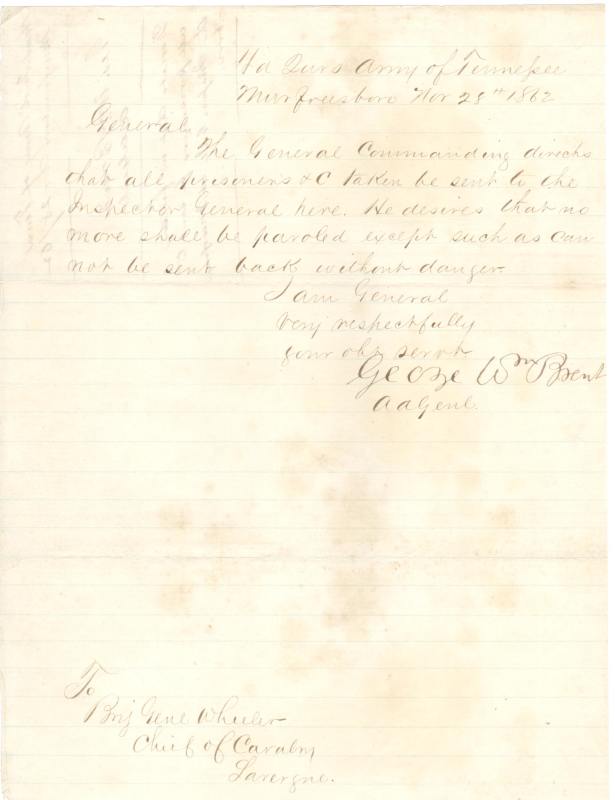 Hd Qurs Army of Tennessee
Murfreesboro Nov 28th 1862
General
The General Commanding directs
that all prisoners &C taken be sent to the
Inspector General here. He desires that no
more shall be paroled except such as can
not be sent back without danger.
I am General
Very respectfully
your obt servt
George Wm Brent
A A Genl.
To
Brig Genl Wheeler
Chief of Cavalry
Lavergne.